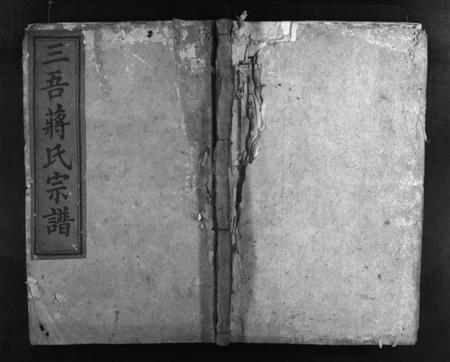 三吾蔣氏宗譜